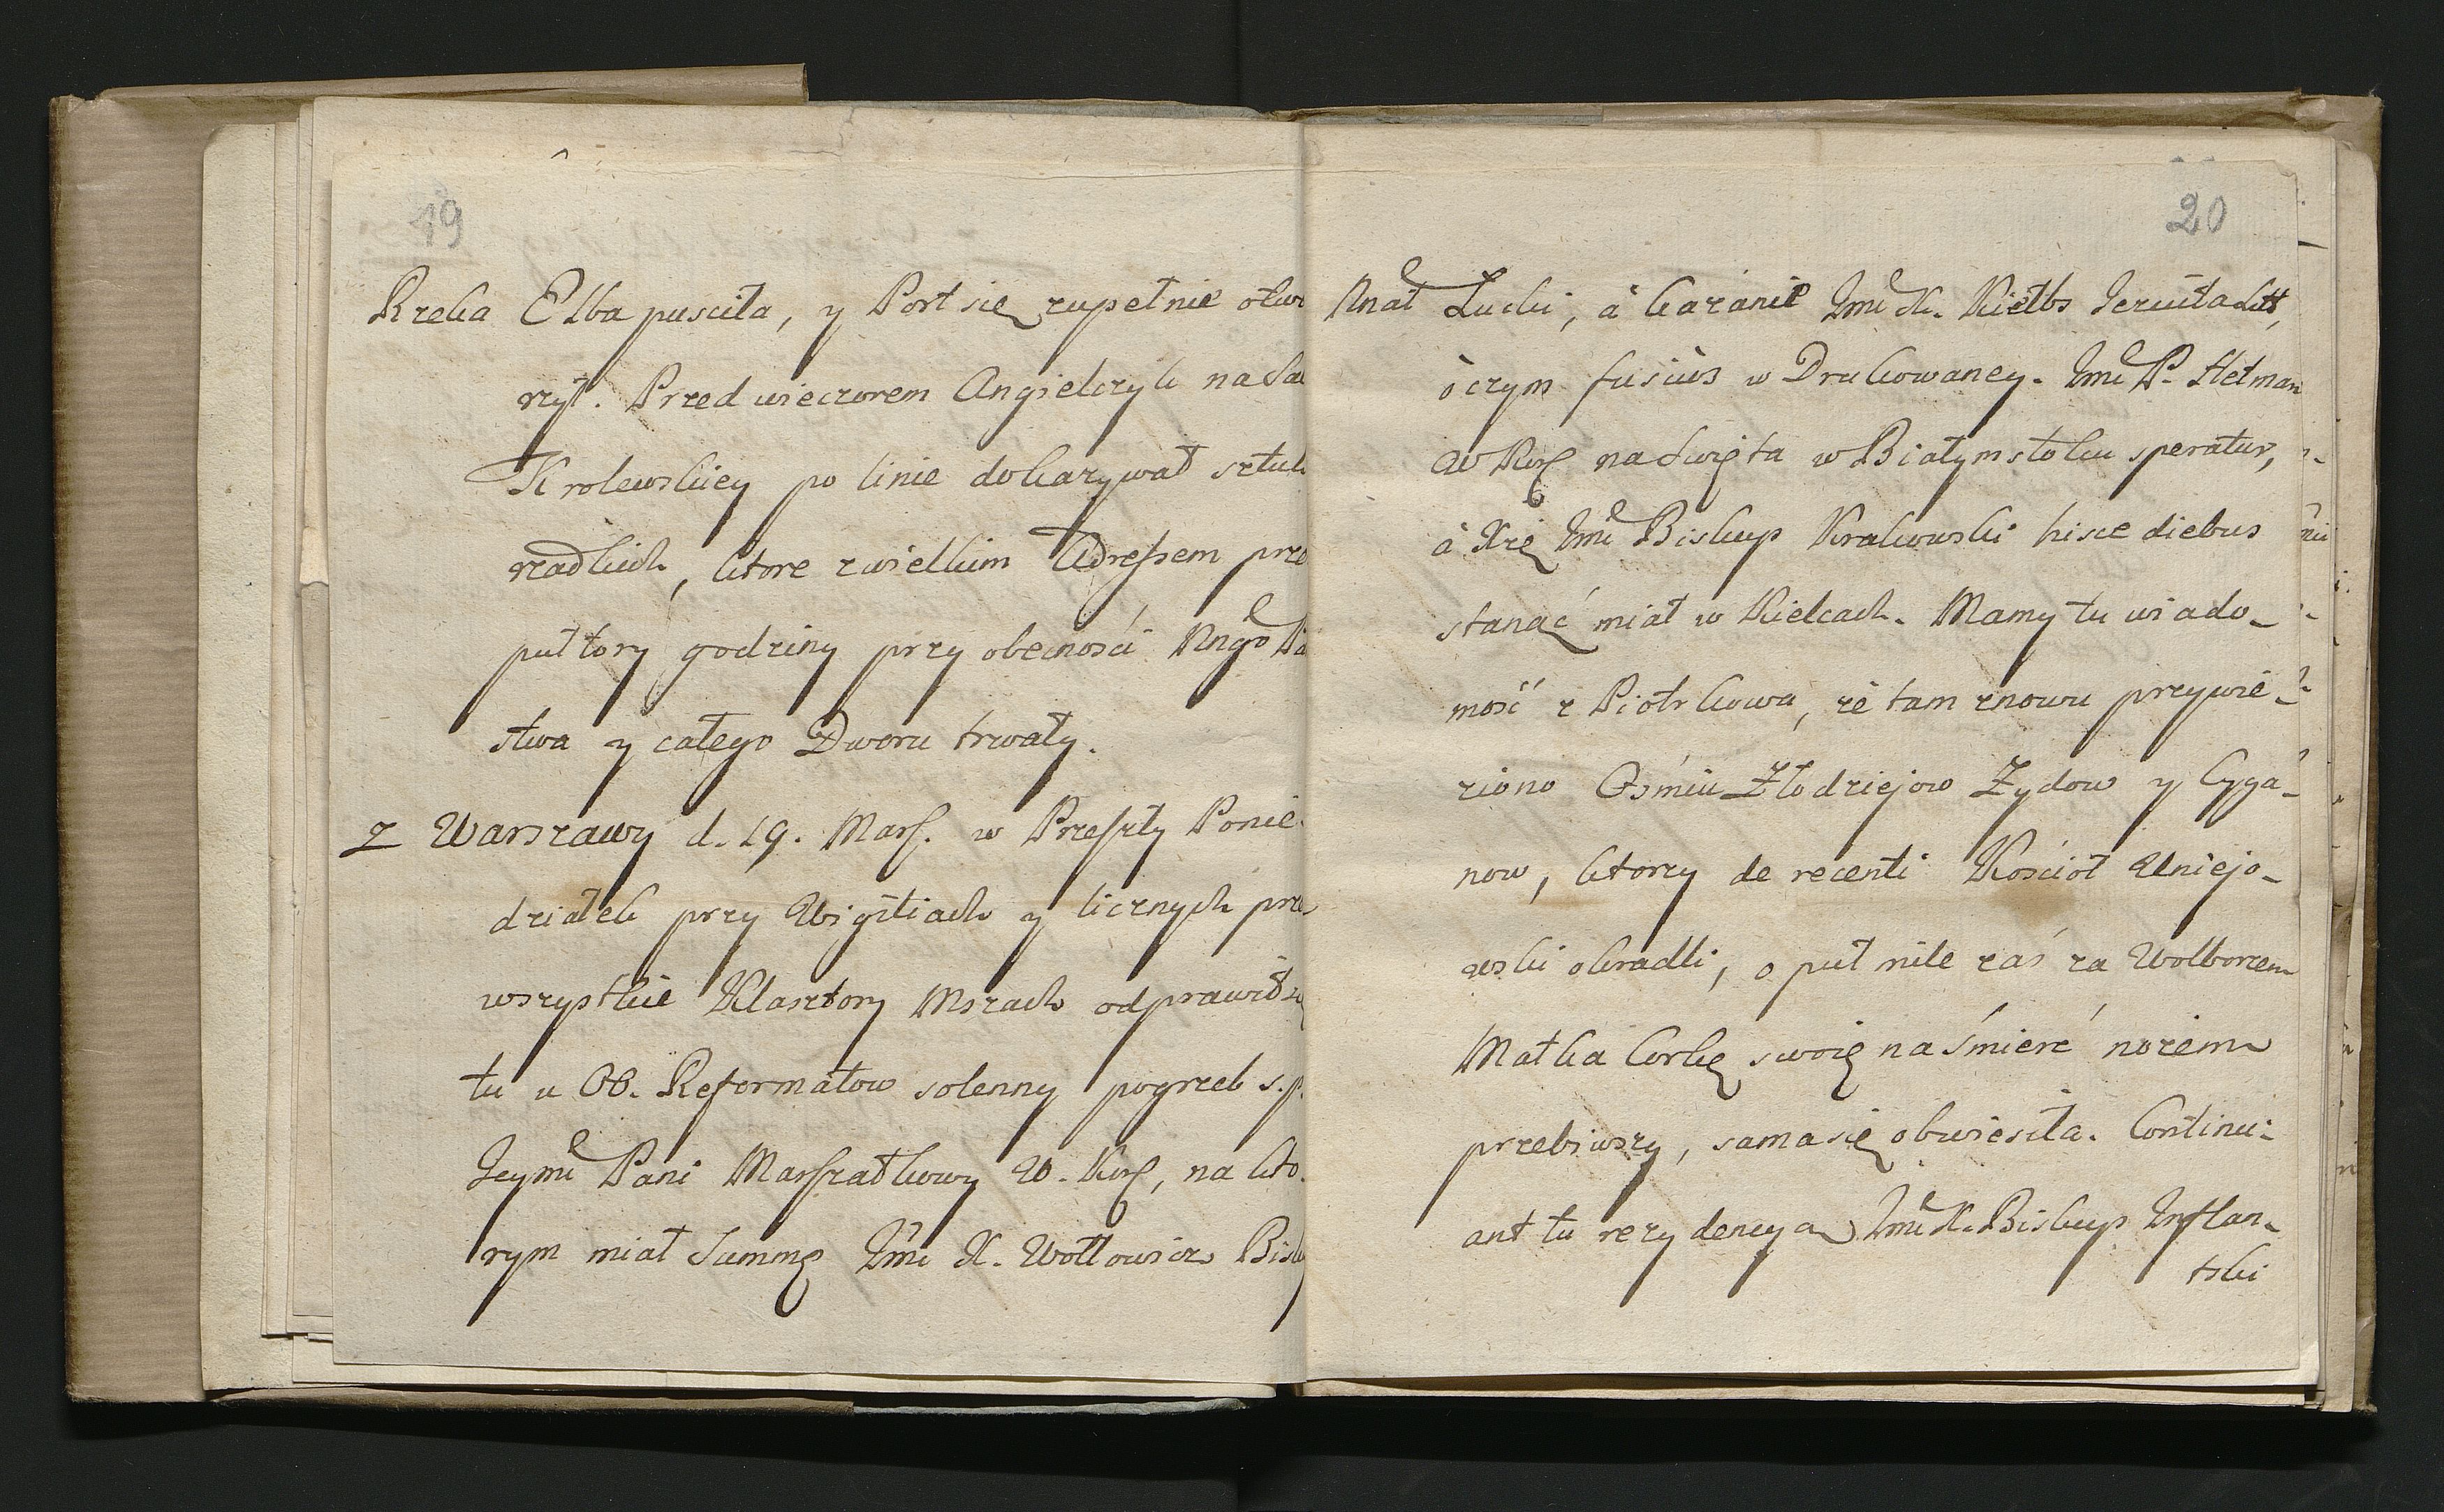 19
Rzeka Elba puscita, y Port się zupełnie otwo
rzył. Przed wieczorem Angielczyk na Sal
Krolewskiey po linie dokazywał sztuk
rzadkich, ktore z wielkim Adressem prze
pułtory godziny przy obecnosci Nngo Pa
stwa y całego Dworu trwały.
Z Warszawy d. 19. Mars. w Przeszły Ponie-
działek przy Wigiliach y licznych prze
wszystkie Klasztory Mszach odprawił się
tu u OO. Reformatow solenny pogrzeb s.p.
Jeymci Pani Marszałkowy W. Kor, na kto-
rym miał Summę Jmć X. Wołłowicz Bisku
20
Nnał Łucki, á kazanie Jmć X. Kiełbs Jezuita Litt,
ò czym fusiùs w Drukowaney. Jmć P. Hetman
W Kor na Swięta w Białymstoku speratur,
à Xżę Jmć Biskup Krakowski hisce diebus
stanąć miał w Kielcach. Mamy tu wiado-
mość z Piotrkowa, że tam znowu przywie-
ziono Ośmiu Złodziejow Żydow y Cyga-
now, ktorzy de recenti Kościoł Uniejo-
wski okradli, o puł mile zaś za Wolborzem
Matka Corkę swoię na śmierć nożem
przebiwszy, sama się obwiesiła. Continu-
ant tu rezydencya Jmć X. Biskup Inflan-
tski